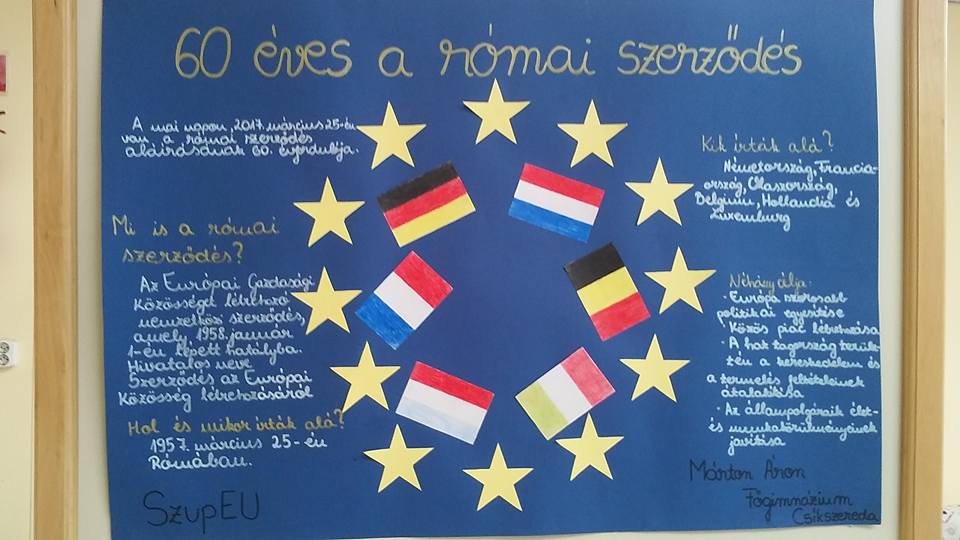 60 éves a római szerződés
A mai napon, 2017. március 25-én
van a római szerződés
aláírásának 60. évfordulója.
Mi is a római
szerződés?
Az Európai Gazdasági
Közösséget létrehozó
nemzetközi szerződés,
amely 1958. január
1-én lépett hatályba.
Hivatalos neve
Szerződés az Európai
Közösség létrehozásáról
Hol és mikor írták alá?
1957. március 25-én
Rómában.
SzupEU
Kik írták alá?
Németország, Francia-
ország, Olaszország,
Belgium, Hollandia és
Luxemburg
Néhány célja:
· Európa szorosabb
politikai egyesítése
· Közös piac létrehozása
· A hat tagország terüle-
tén a kereskedelem és
a termelés feltételeinek
átalakítása
· Az állampolgáraik élet-
és munkakörülményeinek
javítása
Márton Áron
Főgimnázium
Csíkszereda